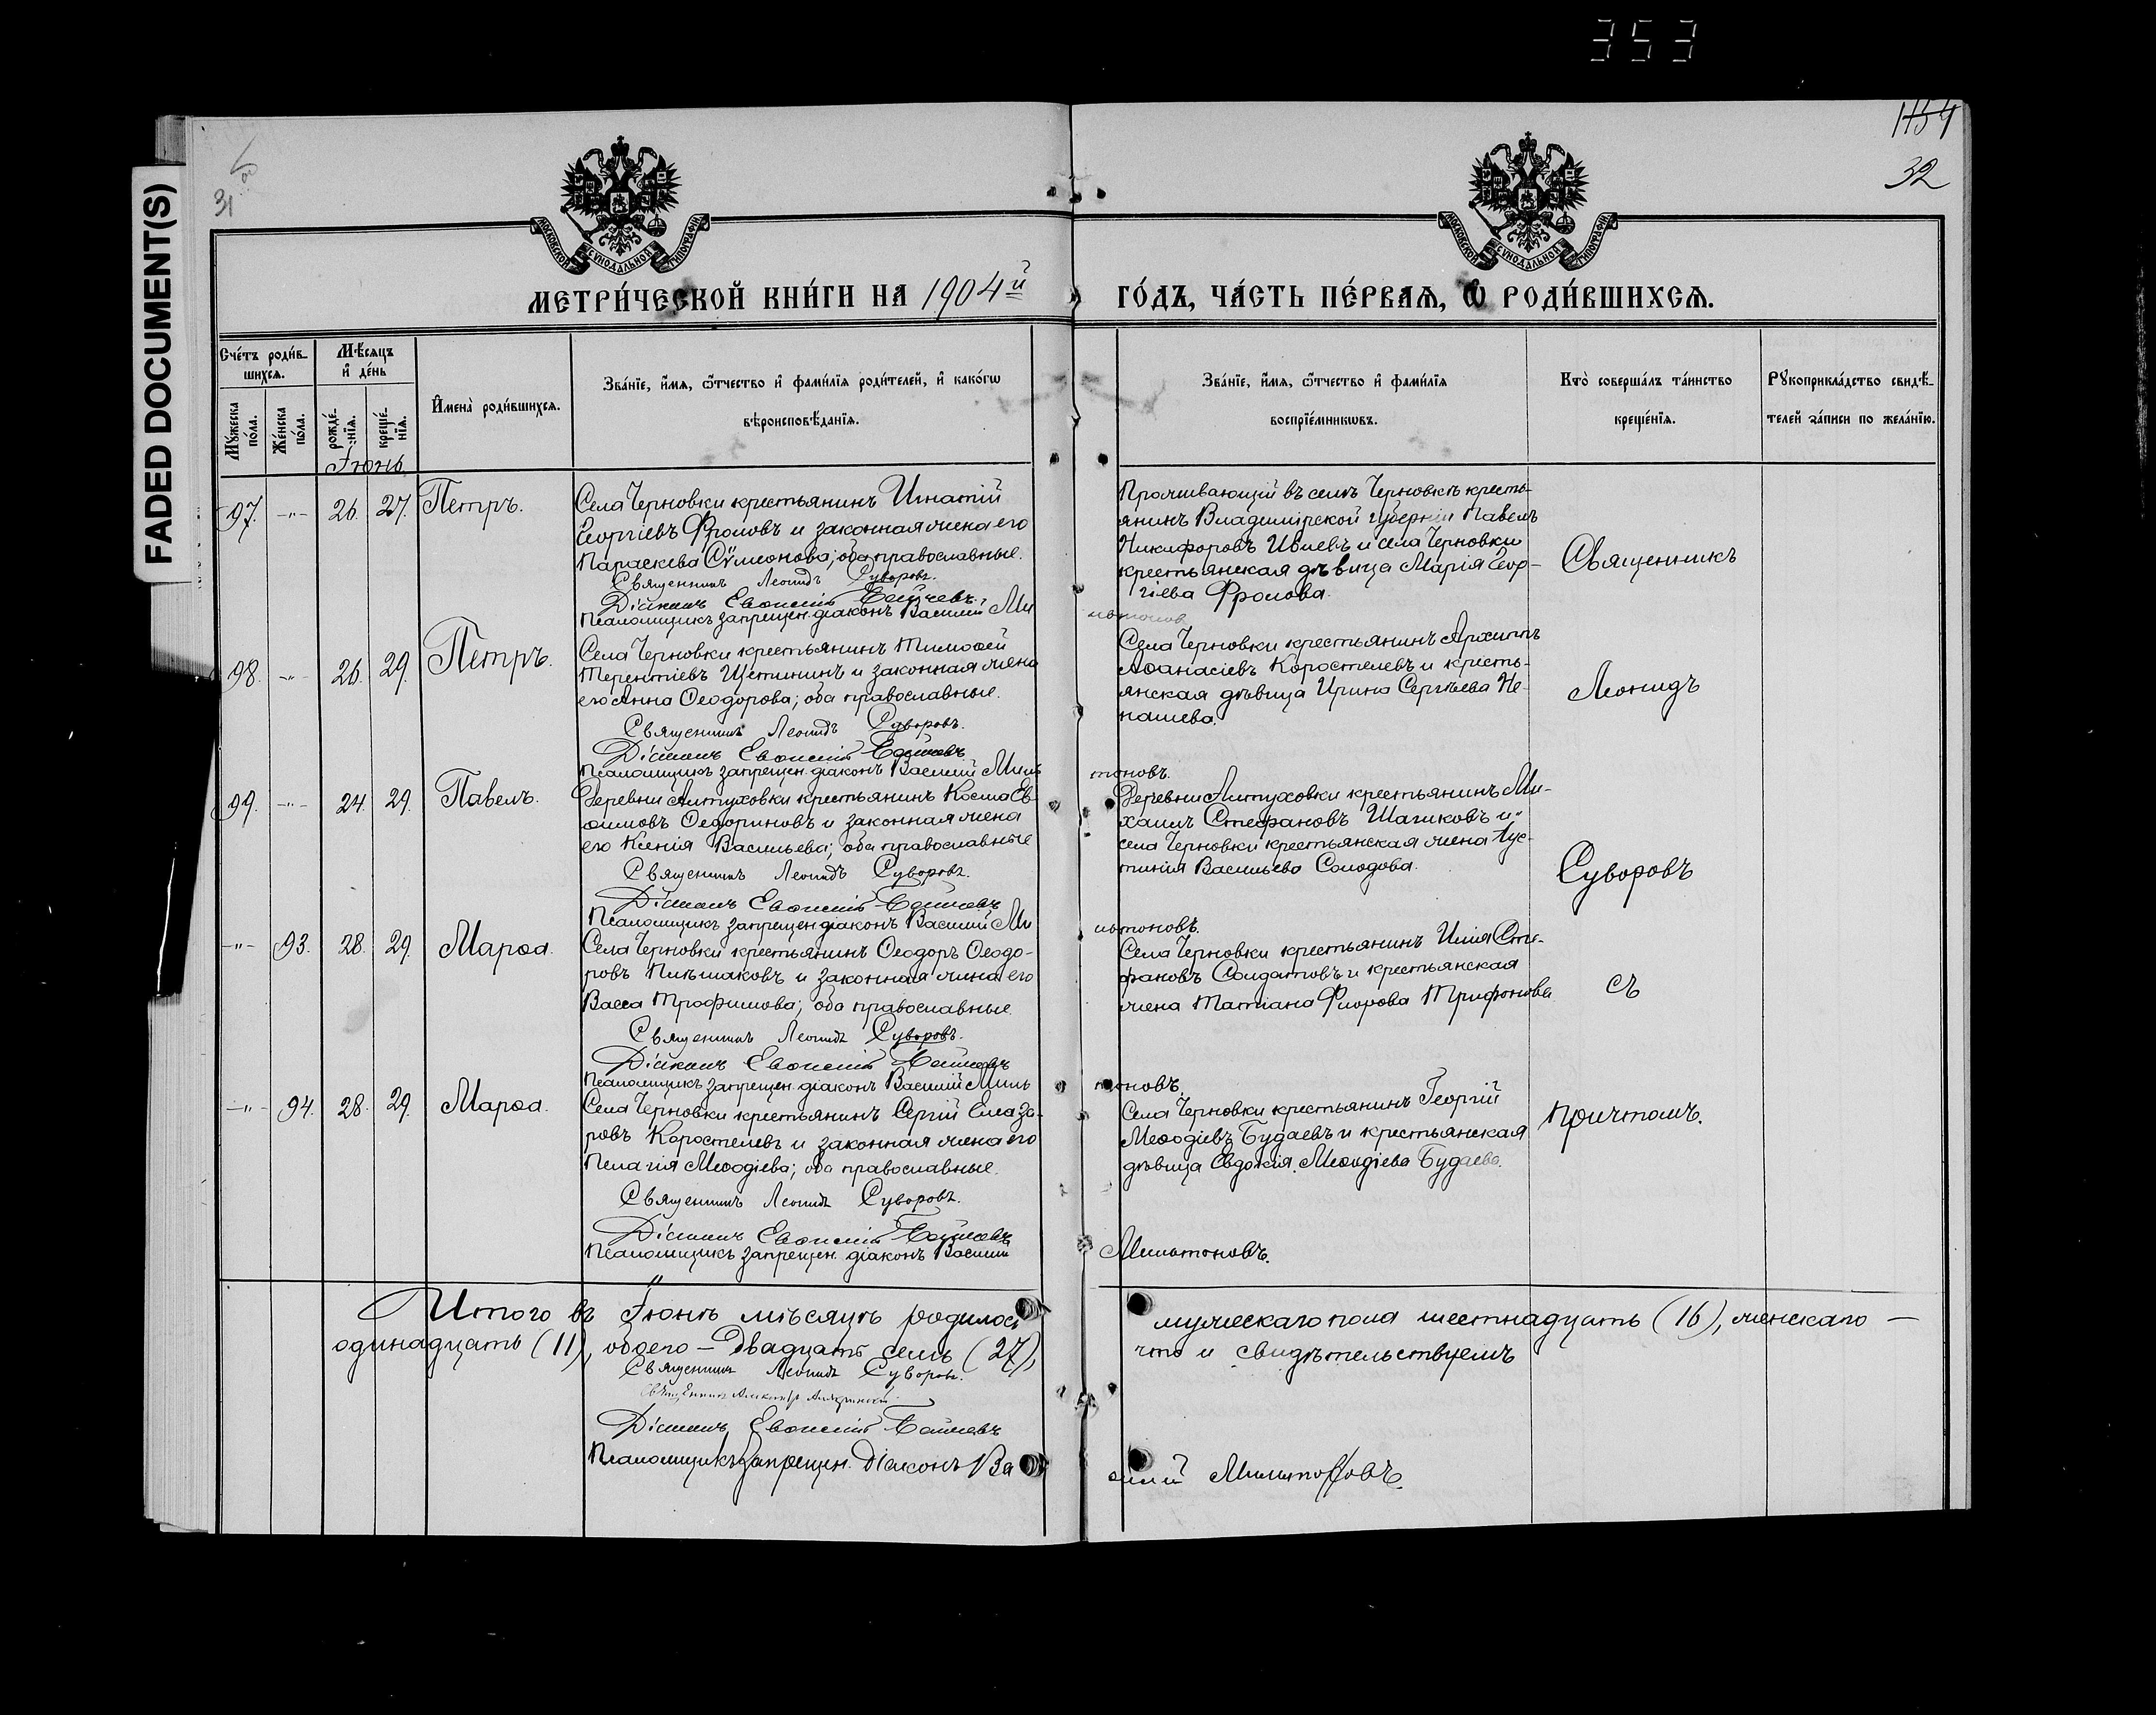 353
FADED DOCUMENT(S)
1154
31
32
МОСКОВСКОЙ СѴНОДАЛЬНОЙ ТИПОГРАФІИ
МОСКОВСКОЙ СѴНОДАЛЬНОЙ ТИПОГРАФІИ
МЕТРИ́ЧЕСКОЙ КНИ́ГИ НА 1904й ГО́ДЪ, ЧА́СТЬ ПЕ́РВАЯ, Ѽ РОДИ́ВШИХСЯ.
Сче́тъ роди́в-
шихся.
Мꙋ́жеска по́ла.
Же́нска по́ла.
Мѣ́сяцъ
и҆ де́нь
рожде́-нія.
креще́-нія.
И҆мена̀ роди́вшихся.
Зва́ніе, и҆́мя, ѻ҆́тчество и҆ фами́лія роди́телей, и҆ какѡ́гѡ
вѣроисповѣ́данія.
Зва́ніе, и҆́мя, ѻ҆́тчество и҆ фами́лія
воспріе́мникѡвъ.
Кто̀ соверша́лъ та́инство
креще́нія.
Рꙋкоприкла́дство свидѣ́-
телей за́писи по жела́нію.
Іюнь
97. -"- 26. 27. Петръ.
Села Черновки крестьянинъ Игнатій
Георгіевъ Фроловъ и законная жена его
Параскева Сѵмеонова; оба православные.
Священникъ Леонидъ Суворовъ.
Діаконъ Евѳимій
Псаломщикъ запрещен. діаконъ Василій Ми
льтоновъ
Проживающій въ селѣ Черновкѣ кресть-
янинъ Владимірской губерніи Павелъ
Никифоровъ Ивлевъ и села Черновки
крестьянская дѣвица Марія Геор-
гіева Фролова.
Священникъ
98. -"- 26. 29. Петръ.
Села Черновки крестьянинъ Тимоѳей
Терентіевъ Щетининъ и законная жена
его Анна Ѳеодорова; оба православные.
Священникъ Леонидъ Суворовъ.
Діаконъ Евѳимій
Псаломщикъ запрещен. діаконъ Василій Миль
тоновъ.
Села Черновки крестьянинъ Архиппъ
Аѳанасіевъ Коростелевъ и кресть-
янская дѣвица Ирина Сергѣева Не-
нашева.
Леонидъ
99. -"- 24. 29. Павелъ.
Деревни Алтуховки крестьянинъ Косма Ев-
ѳимовъ Ѳедориновъ и законная жена
его Ксенія Васильева; оба православные
Священникъ Леонидъ Суворовъ.
Діаконъ Евѳимій
Псаломщикъ запрещен. діаконъ Василій Ми
льтоновъ.
Деревни Алтуховки крестьянинъ Ми-
хаилъ Стефановъ Шашковъ и
села Черновки крестьянская жена Іус-
тинія Васильева Солодова.
Суворовъ
-"- 93. 28. 29. Марѳа.
Села Черновки крестьянинъ Ѳеодоръ Ѳеодо-
ровъ Кильшаковъ и законная жена его
Васса Трофимова; оба православные.
Священникъ Леонидъ Суворовъ.
Діаконъ Евѳимій
Псаломщикъ запрещен. діаконъ Василій Миль
тоновъ.
Села Черновки крестьянинъ Илія Сте-
фановъ Солдатовъ и крестьянская
жена Татіана Флорова Трифонова
съ
-"- 94. 28. 29. Марѳа.
Села Черновки крестьянинъ Сергій Елеаза-
ровъ Коростелевъ и законная жена его
Пелагія Меѳодіева; оба православные.
Священникъ Леонидъ Суворовъ.
Діаконъ Евѳимій
Псаломщикъ запрещен. діаконъ Василій
Мильтоновъ.
Села Черновки крестьянинъ Георгій
Меѳодіевъ Будаевъ и крестьянская
дѣвица Евдокія Меѳодіева Будаева.
причтомъ.
Итого въ Іюнѣ мѣсяцѣ родилось мужескаго пола шестнадцать (16), женскаго —
одинадцать (11), обоего — двадцать семь (27), что и свидѣтельствуемъ
Священникъ Леонидъ Суворовъ.
Священникъ
Діаконъ Евѳимій
Псаломщикъ запрещен. діаконъ Ва
силій Мильтоновъ.